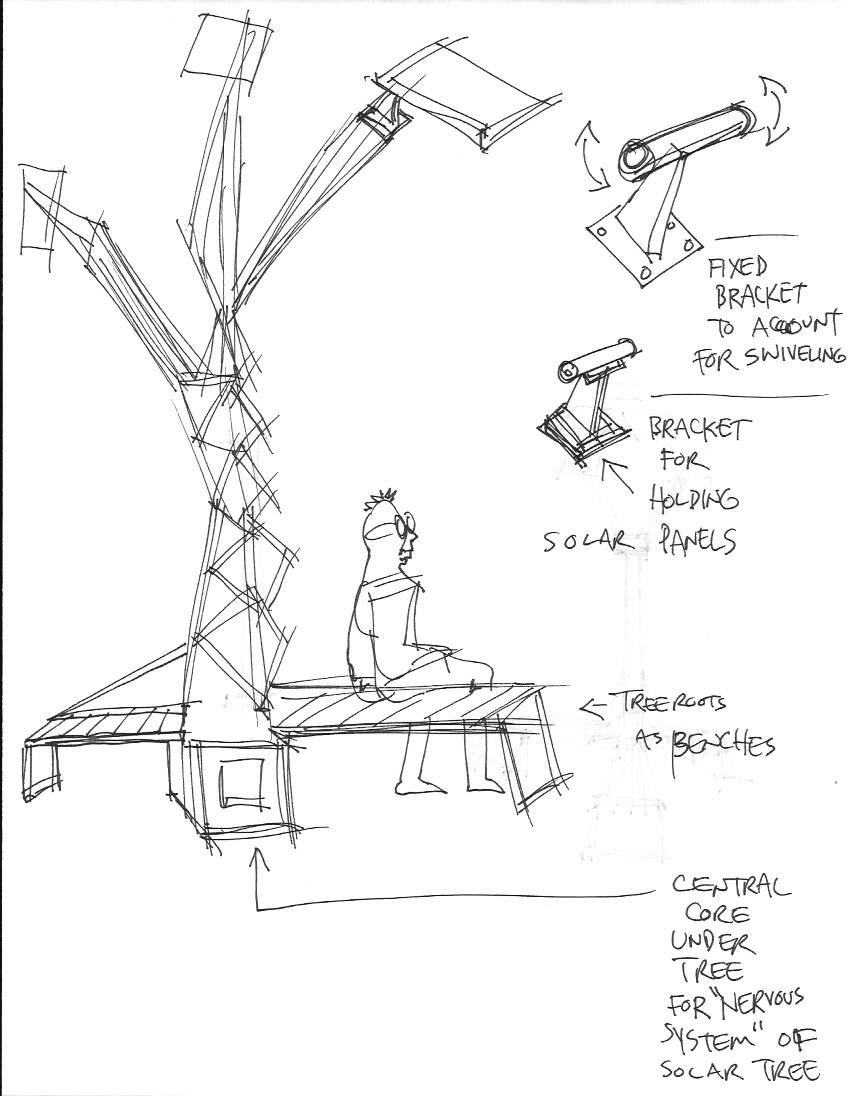 FIXED
BRACKET
TO ACCOUNT
FOR SWIVELING
BRACKET
FOR
HOLDING
SOLAR PANELS
TREE ROOTS
AS BENCHES
CENTRAL
CORE
UNDER
TREE
FOR "NERVOUS
SYSTEM" OF
SOLAR TREE